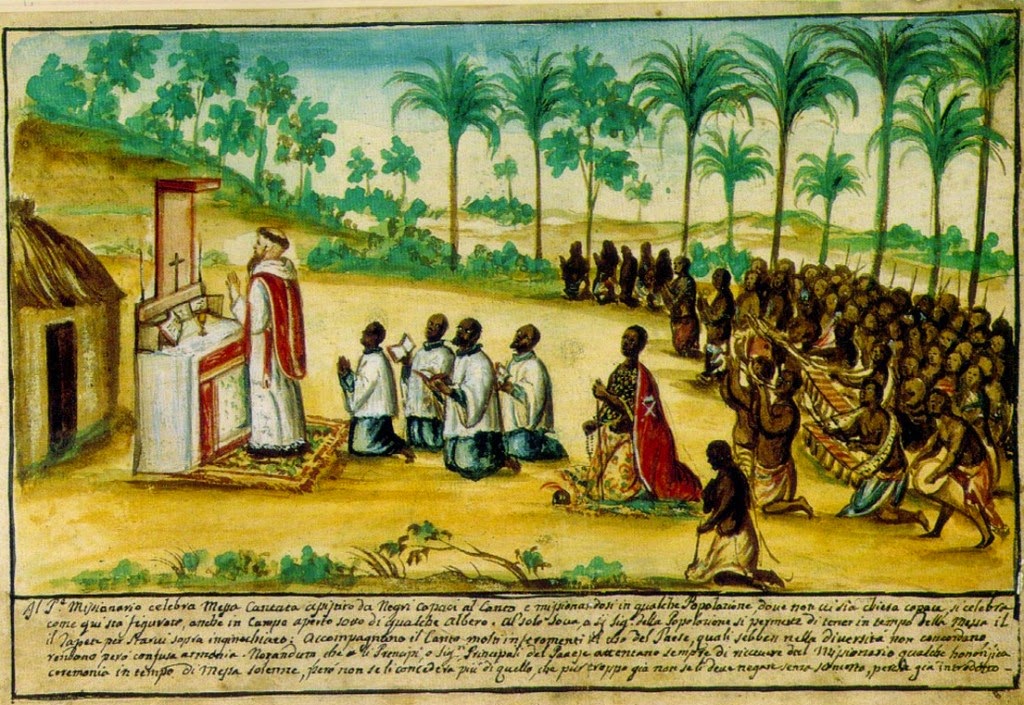 Il P.e Missionario celebra Messa Cantata assistito da Negri capaci al Canto e missionandosi in qualche Popolazione dove non vi sia chiesa capace, si celebra
come qui sta figurato, anche in Campo aperto sotto di qualche albero. Al solo Sova, o sig.e della Popolazione si permette di tener in tempo della Messa il
il Tapeto per starvi sopra inginochiato: Accompagnano il Canto molti instromenti al uso del Paese, quali sebben nella diversità non concordano,
rendono però confusa armonia. Notandum che i Principi, o Sig.ri Principali del Paese attentano sempre di ricevere dal Missionario qualche honorifica
ceremonia in tempo di Messa solenne, però non se li concederà più di quello, che pur troppo già non se li deve negare senza perchè già introdotto